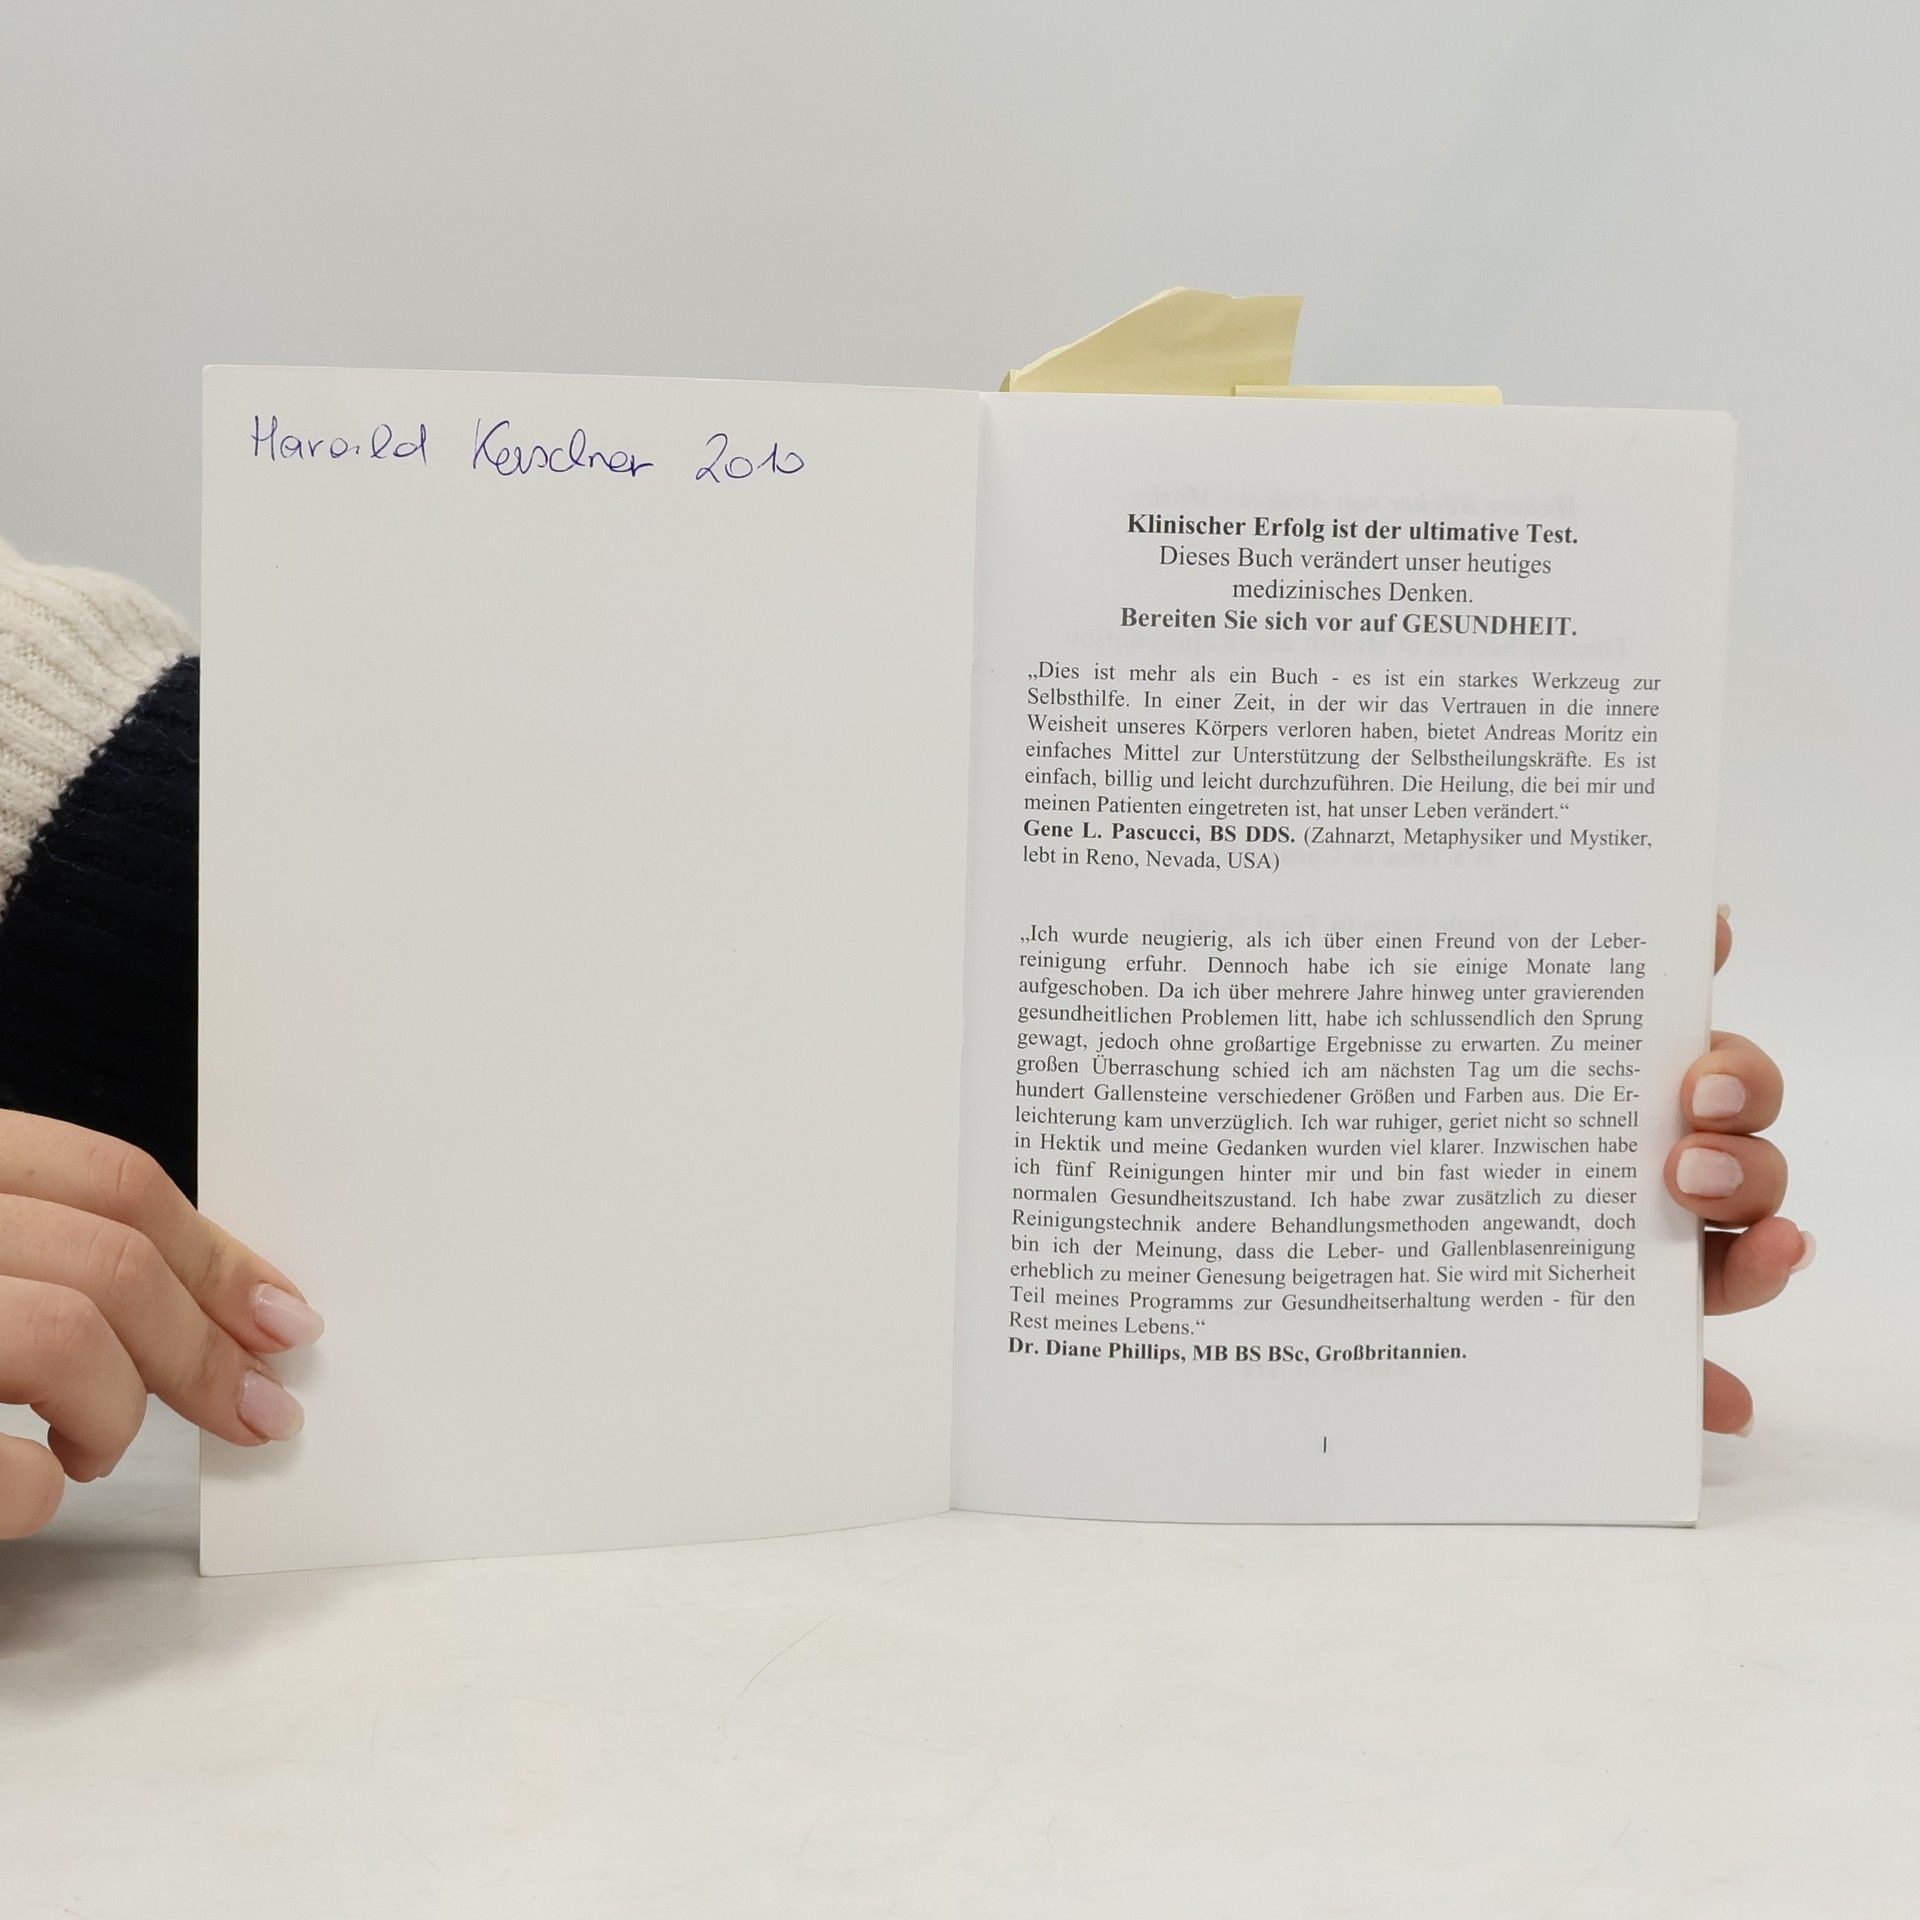 Harald Kerschner 2010
Klinischer Erfolg ist der ultimative Test.
Dieses Buch verändert unser heutiges
medizinisches Denken.
Bereiten Sie sich vor auf GESUNDHEIT.
„Dies ist mehr als ein Buch - es ist ein starkes Werkzeug zur
Selbsthilfe. In einer Zeit, in der wir das Vertrauen in die innere
Weisheit unseres Körpers verloren haben, bietet Andreas Moritz ein
einfaches Mittel zur Unterstützung der Selbstheilungskräfte. Es ist
einfach, billig und leicht durchzuführen. Die Heilung, die bei mir und
meinen Patienten eingetreten ist, hat unser Leben verändert.“
Gene L. Pascucci, BS DDS. (Zahnarzt, Metaphysiker und Mystiker,
lebt in Reno, Nevada, USA)
„Ich wurde neugierig, als ich über einen Freund von der Leber-
reinigung erfuhr. Dennoch habe ich sie einige Monate lang
aufgeschoben. Da ich über mehrere Jahre hinweg unter gravierenden
gesundheitlichen Problemen litt, habe ich schlussendlich den Sprung
gewagt, jedoch ohne großartige Ergebnisse zu erwarten. Zu meiner
großen Überraschung schied ich am nächsten Tag um die sechs-
hundert Gallensteine verschiedener Größen und Farben aus. Die Er-
leichterung kam unverzüglich. Ich war ruhiger, geriet nicht so schnell
in Hektik und meine Gedanken wurden viel klarer. Inzwischen habe
ich fünf Reinigungen hinter mir und bin fast wieder in einem
normalen Gesundheitszustand. Ich habe zwar zusätzlich zu dieser
Reinigungstechnik andere Behandlungsmethoden angewandt, doch
bin ich der Meinung, dass die Leber- und Gallenblasenreinigung
erheblich zu meiner Genesung beigetragen hat. Sie wird mit Sicherheit
Teil meines Programms zur Gesundheitserhaltung werden - für den
Rest meines Lebens.“
Dr. Diane Phillips, MB BS BSc, Großbritannien.
I